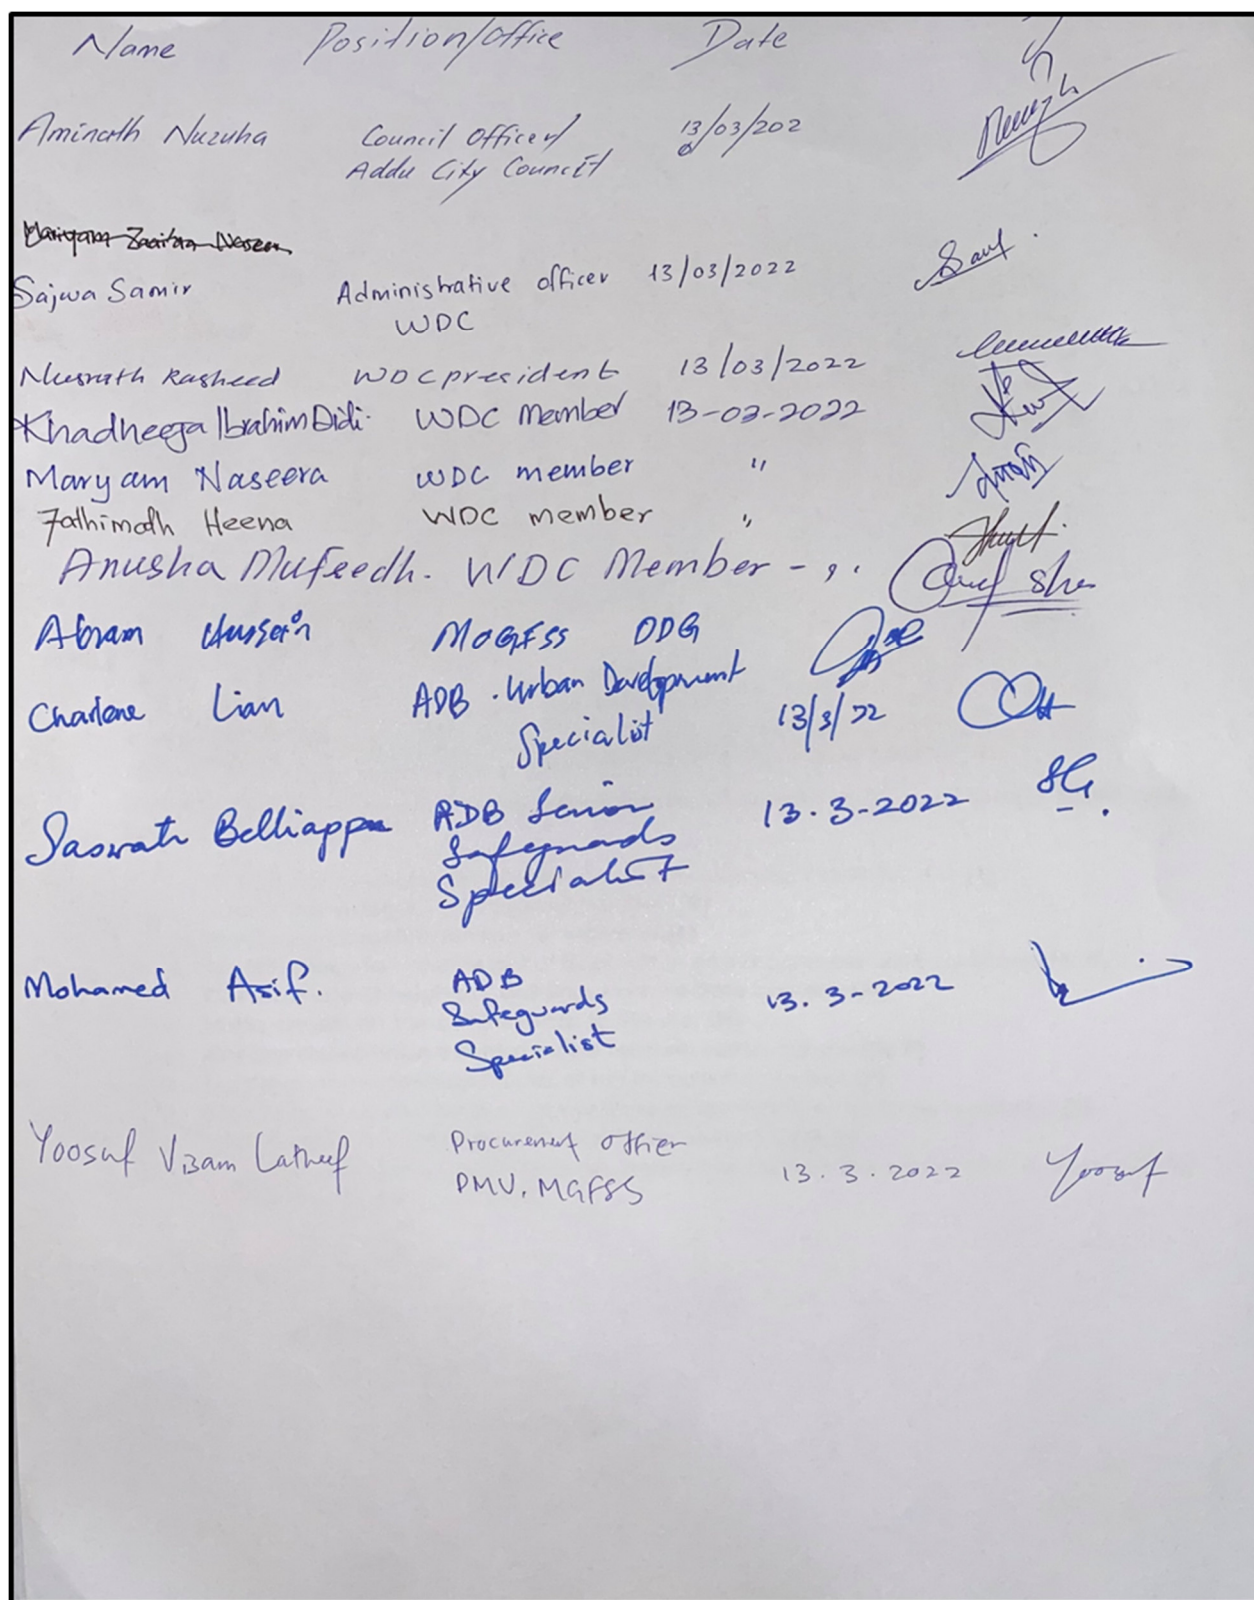 Name Position/Office Date
Aminath Nuzuha Council Officer/ 13/03/202
Addu City Council
Mariyam Naseem
Sajwa Samir Administrative officer 13/03/2022
WDC
Nusrath Rasheed WDC president 13/03/2022
Khadheeja Ibrahim Didi. WDC Member 13-03-2022
Maryam Naseera WDC member "
Fathimath Heena WDC member "
Anusha Mufeedh. WDC Member - ,.
Hussain MoGFSS ODG
Charlene Lian ADB . Urban Development 13/3/22
Specialist
Saswath Belliappa ADB Senior 13.3-2022
Safeguards
Specialist
Mohamed Asif. ADB 13.3-2022
Safeguards
Specialist
Yoosuf Vizam Latheef Procurement officer
PMU, MGFSS 13.3.2022 Yoosuf